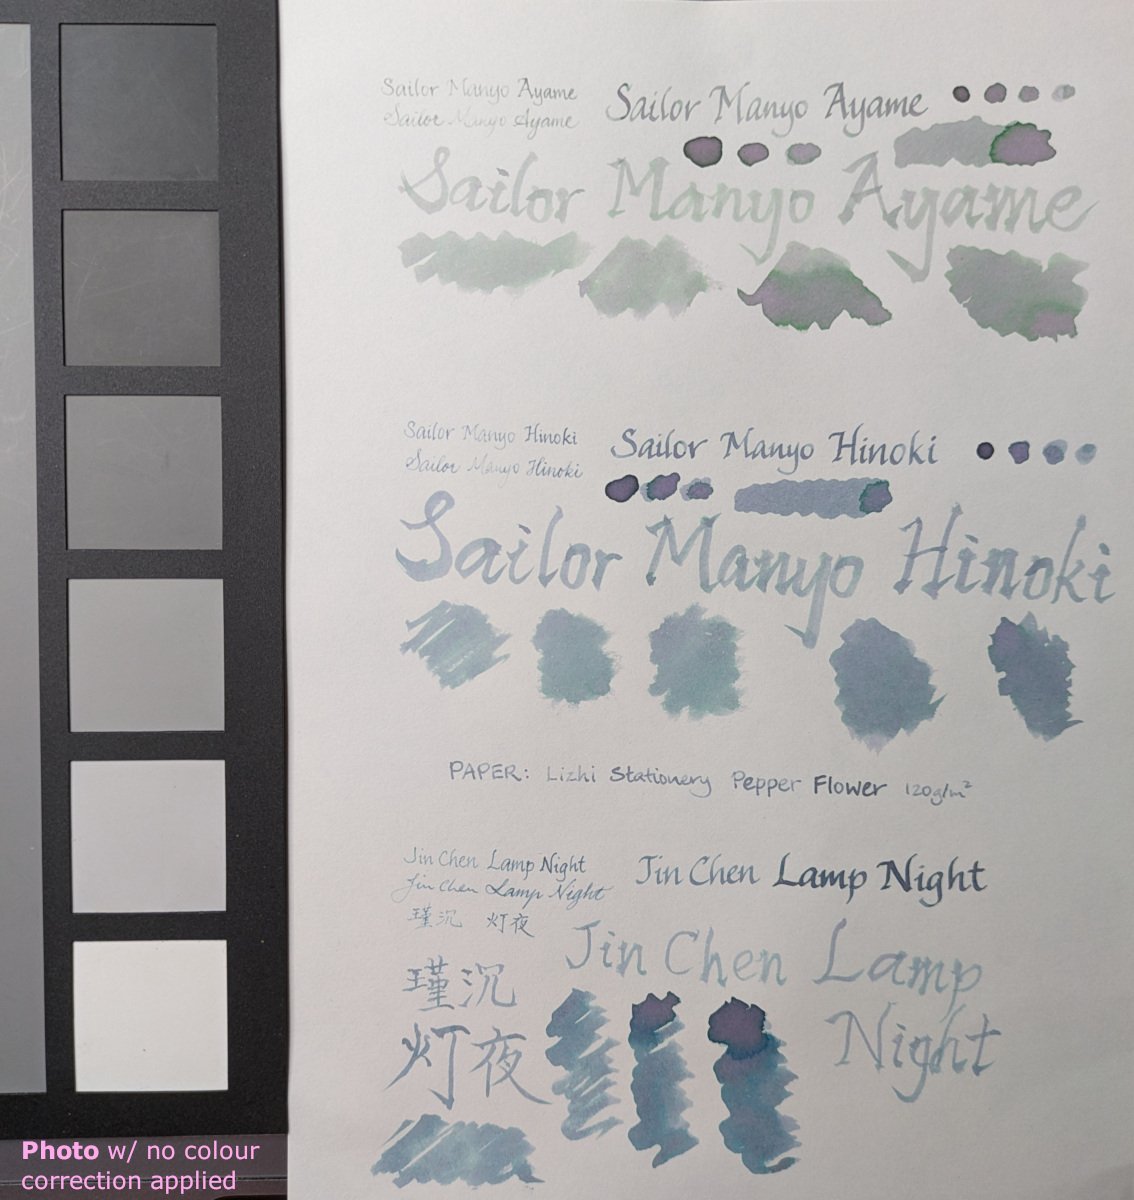 Sailor Manyo Ayame
Sailor Manyo Ayame
Sailor Manyo Ayame
Sailor Manyo Ayame
Sailor Manyo Hinoki
Sailor Manyo Hinoki
Sailor Manyo Hinoki
Sailor Manyo Hinoki
PAPER: Lizhi Stationery Pepper Flower 120g/m²
Jin Chen Lamp Night
Jin Chen Lamp Night
瑾沉 灯夜
Jin Chen Lamp Night
Jin Chen Lamp
Night
瑾沉
灯夜
Photo w/ no colour
correction applied